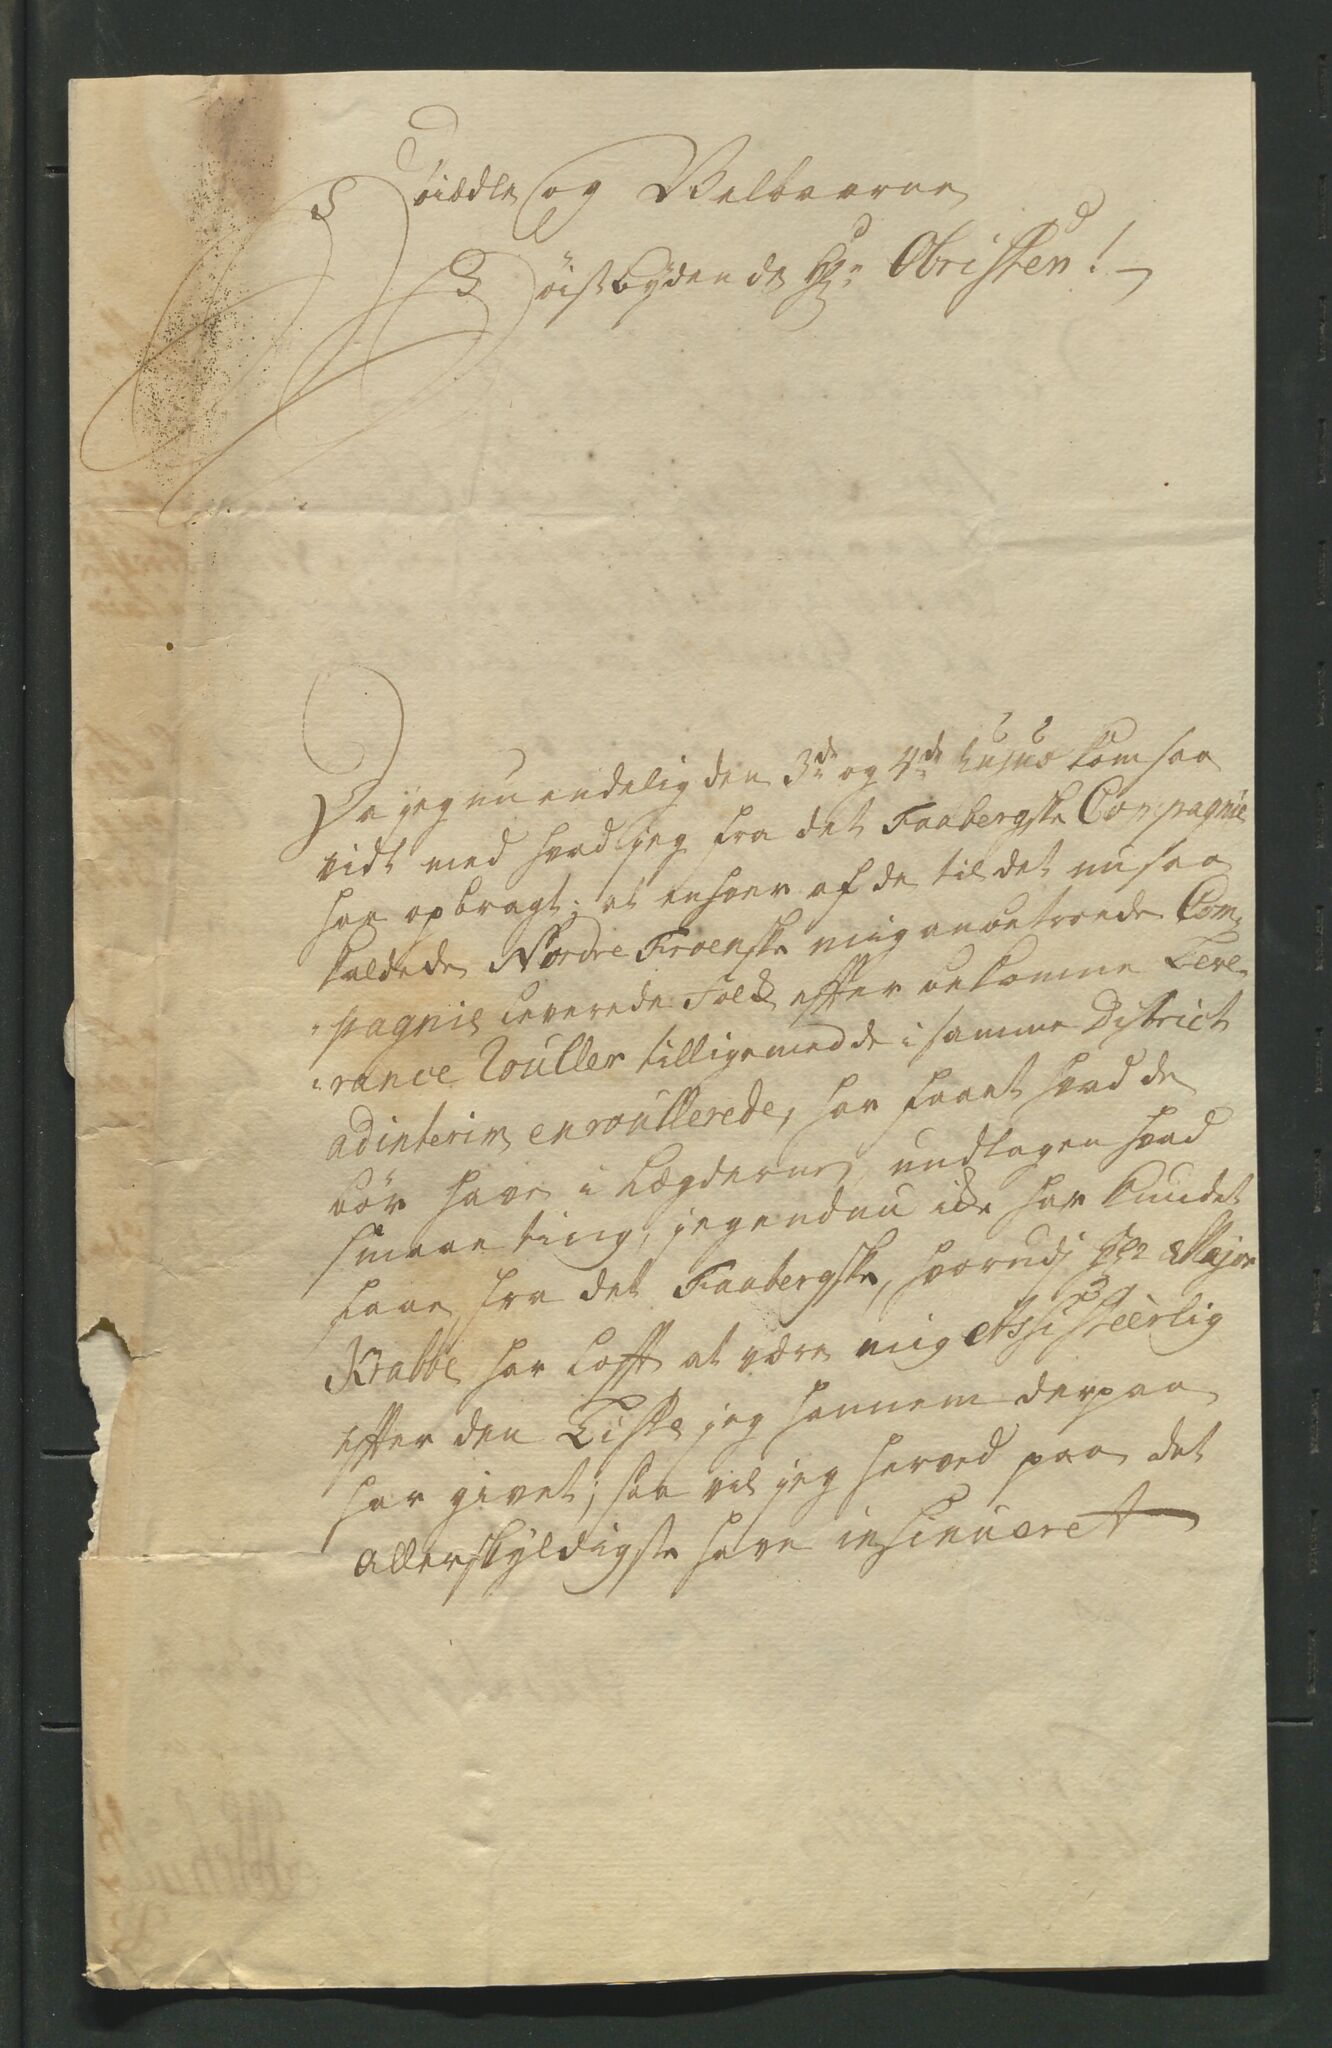 Höiædle og Velbaarne
Höistbydende Hr Obristen! -
Da jeg nu endelig den 3de og 4de hujus kom saa
vidt med hvad jeg fra det Faabergske Compagnie
har opbragt; at enhver af de til det nu saa
kaldede Nordre Froenske mig anbetroede Com
pagnie leverede Folk efter bekomne Leve
rance Rouller tilligemed de i samme District
ad interim enroullerede, har faaet hvad de
bör have i Lægderne, undtagen hvad
smaae ting, jeg endnu ikke har kundet
faae fra det Faabergske, hvorudj Hr Major
Krabbe har loft at være mig Assisteerlig
efter den Liste jeg hannem derpaa
har givet; saa vil jeg herved paa det
allerskyldigste have insinueret